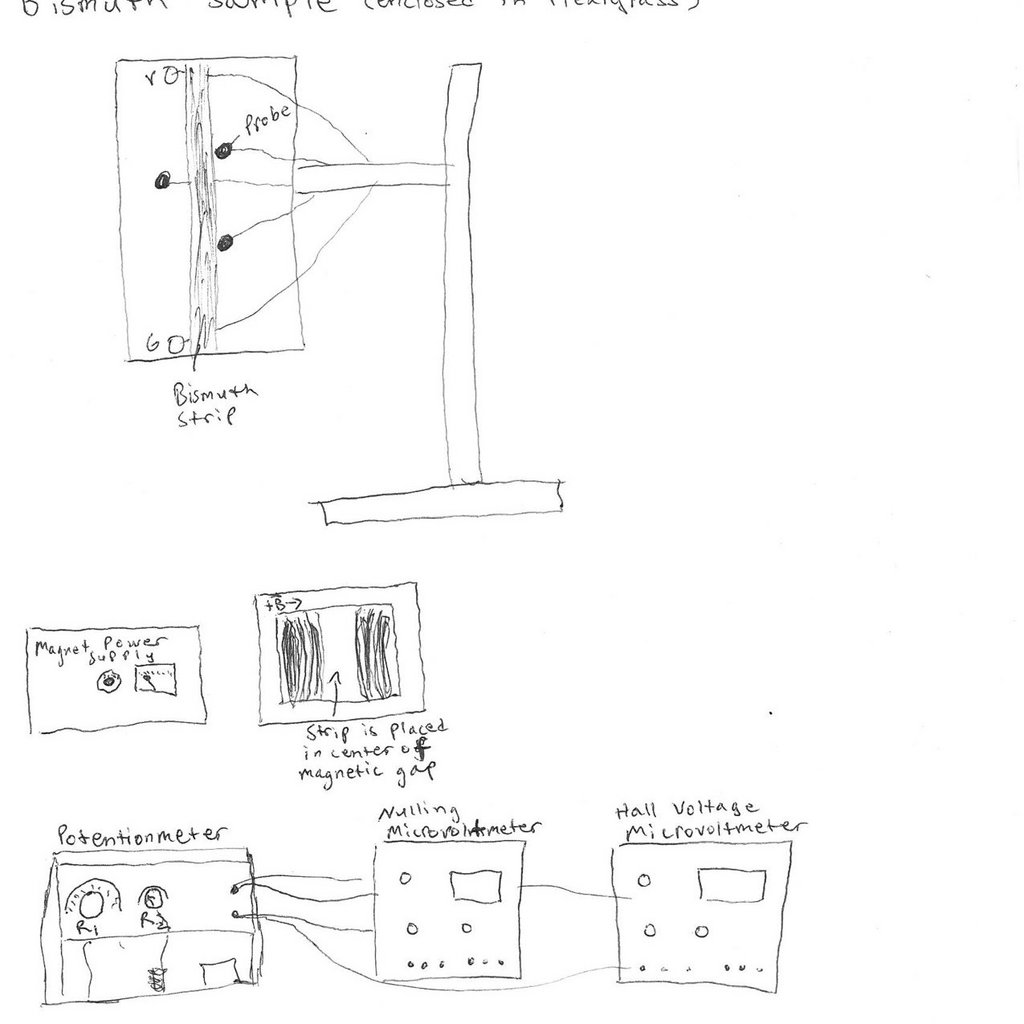 Bismuth sample (enclosed in Plexiglass)
r
Probe
G
Bismuth
strip
+B→
Magnet Power
supply
Strip is placed
in center of
magnetic gap
Potentionmeter
Nulling
Microvoltmeter
Hall Voltage
Microvoltmeter
R1
R2